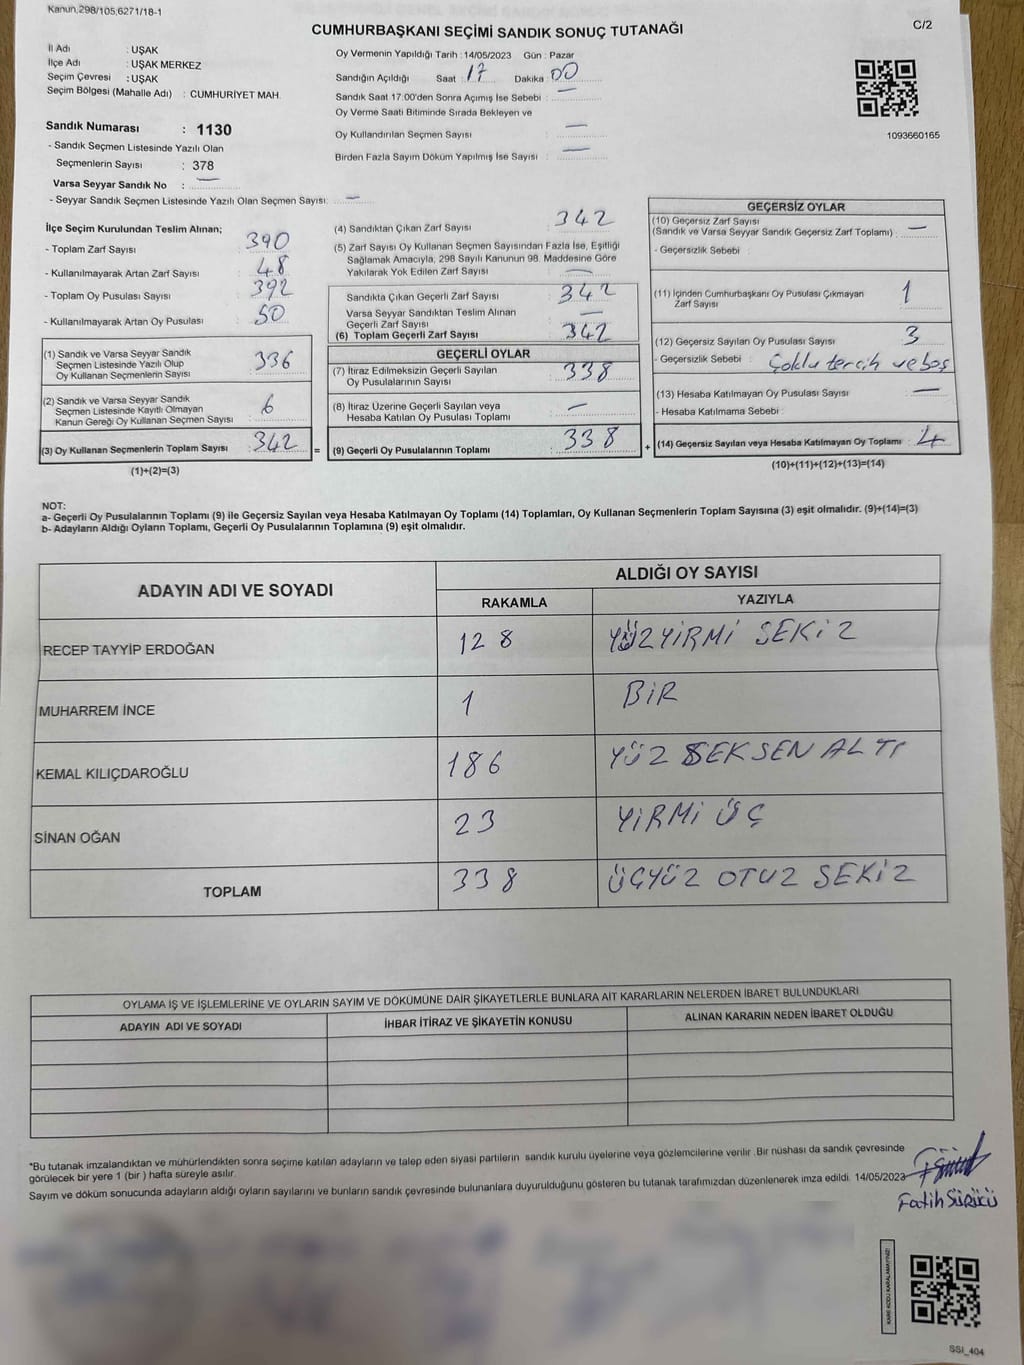 Kanun,298/105,6271/18-1
CUMHURBAŞKANI SEÇİMİ SANDIK SONUÇ TUTANAĞI
C/2
İl Adı : UŞAK
İlçe Adı : UŞAK MERKEZ
Seçim Çevresi : UŞAK
Seçim Bölgesi (Mahalle Adı) : CUMHURİYET MAH.
Sandık Numarası : 1130
- Sandık Seçmen Listesinde Yazılı Olan
Seçmenlerin Sayısı : 378
Varsa Seyyar Sandık No : —
- Seyyar Sandık Seçmen Listesinde Yazılı Olan Seçmen Sayısı: —
Oy Vermenin Yapıldığı Tarih : 14/05/2023 Gün : Pazar
Sandığın Açıldığı Saat 17 Dakika 00
Sandık Saat 17:00'den Sonra Açımış İse Sebebi : —
Oy Verme Saati Bitiminde Sırada Bekleyen ve
Oy Kullandırılan Seçmen Sayısı : —
Birden Fazla Sayım Döküm Yapılmış İse Sayısı : —
1093660165
İlçe Seçim Kurulundan Teslim Alınan;
- Toplam Zarf Sayısı : 390
- Kullanılmayarak Artan Zarf Sayısı : 48
- Toplam Oy Pusulası Sayısı : 392
- Kullanılmayarak Artan Oy Pusulası : 50
(1) Sandık ve Varsa Seyyar Sandık
Seçmen Listesinde Yazılı Olup
Oy Kullanan Seçmenlerin Sayısı : 336
(2) Sandık ve Varsa Seyyar Sandık
Seçmen Listesinde Kayıtlı Olmayan
Kanun Gereği Oy Kullanan Seçmen Sayısı : 6
(3) Oy Kullanan Seçmenlerin Toplam Sayısı : 342 =
(1)+(2)=(3)
(4) Sandıktan Çıkan Zarf Sayısı : 342
(5) Zarf Sayısı Oy Kullanan Seçmen Sayısından Fazla İse, Eşitliği
Sağlamak Amacıyla, 298 Sayılı Kanunun 98. Maddesine Göre
Yakılarak Yok Edilen Zarf Sayısı : —
Sandıkta Çıkan Geçerli Zarf Sayısı : 342
Varsa Seyyar Sandıktan Teslim Alınan
Geçerli Zarf Sayısı : —
(6) Toplam Geçerli Zarf Sayısı : 342
GEÇERLİ OYLAR
(7) İtiraz Edilmeksizin Geçerli Sayılan
Oy Pusulalarının Sayısı : 338
(8) İtiraz Üzerine Geçerli Sayılan veya
Hesaba Katılan Oy Pusulası Toplamı : —
(9) Geçerli Oy Pusulalarının Toplamı : 338 +
GEÇERSİZ OYLAR
(10) Geçersiz Zarf Sayısı
(Sandık ve Varsa Seyyar Sandık Geçersiz Zarf Toplamı) : —
- Geçersizlik Sebebi :
(11) İçinden Cumhurbaşkanı Oy Pusulası Çıkmayan
Zarf Sayısı : 1
(12) Geçersiz Sayılan Oy Pusulası Sayısı : 3
- Geçersizlik Sebebi : Çoklu tercih ve boş
(13) Hesaba Katılmayan Oy Pusulası Sayısı : —
- Hesaba Katılmama Sebebi :
(14) Geçersiz Sayılan veya Hesaba Katılmayan Oy Toplamı : 4
(10)+(11)+(12)+(13)=(14)
NOT:
a- Geçerli Oy Pusulalarının Toplamı (9) ile Geçersiz Sayılan veya Hesaba Katılmayan Oy Toplamı (14) Toplamları, Oy Kullanan Seçmenlerin Toplam Sayısına (3) eşit olmalıdır. (9)+(14)=(3)
b- Adayların Aldığı Oyların Toplamı, Geçerli Oy Pusulalarının Toplamına (9) eşit olmalıdır.
ADAYIN ADI VE SOYADI ALDIĞI OY SAYISI
RAKAMLA YAZIYLA
RECEP TAYYİP ERDOĞAN 128 YÜZYİRMİ SEKİZ
MUHARREM İNCE 1 BİR
KEMAL KILIÇDAROĞLU 186 YÜZ SEKSEN ALTI
SİNAN OĞAN 23 YİRMİ ÜÇ
TOPLAM 338 ÜÇYÜZ OTUZ SEKİZ
OYLAMA İŞ VE İŞLEMLERİNE VE OYLARIN SAYIM VE DÖKÜMÜNE DAİR ŞİKAYETLERLE BUNLARA AİT KARARLARIN NELERDEN İBARET BULUNDUKLARI
ADAYIN ADI VE SOYADI İHBAR İTİRAZ VE ŞİKAYETİN KONUSU ALINAN KARARIN NEDEN İBARET OLDUĞU
*Bu tutanak imzalandıktan ve mühürlendikten sonra seçime katılan adayların ve talep eden siyasi partilerin sandık kurulu üyelerine veya gözlemcilerine verilir. Bir nüshası da sandık çevresinde
görülecek bir yere 1 (bir ) hafta süreyle asılır.
Sayım ve döküm sonucunda adayların aldığı oyların sayılarını ve bunların sandık çevresinde bulunanlara duyurulduğunu gösteren bu tutanak tarafımızdan düzenlenerek imza edildi. 14/05/2023
Fatih SÜRÜCÜ
KARE KODU KARALAMAYINIZ!
SSI_404